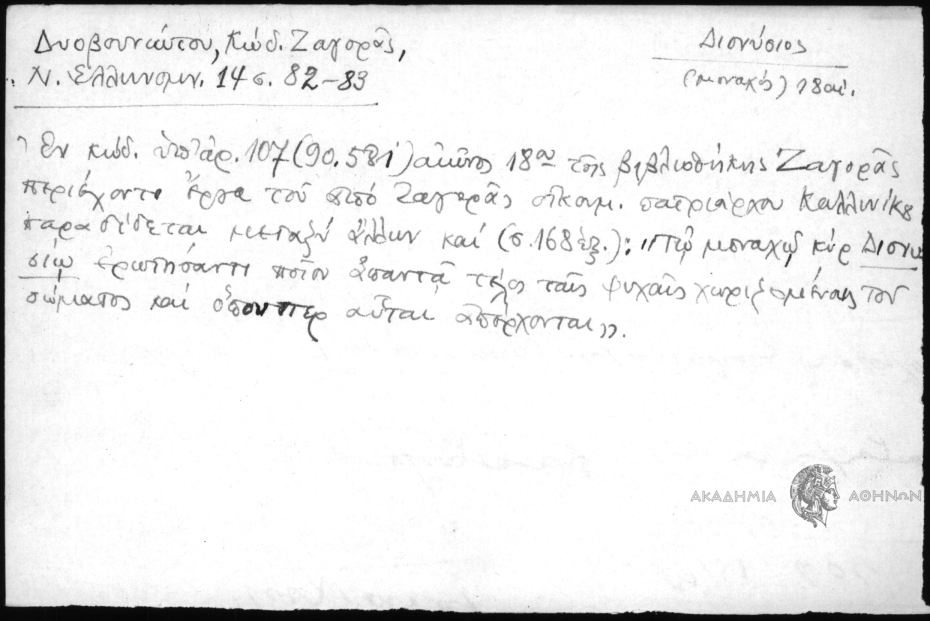 Δυοβουνιώτου, Κώδ. Ζαγορᾶς,
Ν. Ἑλληνομν. 14 σ. 82-83
Διονύσιος
(μοναχός) 18 αἰ.
Ἐν κώδ. ὑπ' ἀρ. 107 (90.581) αἰῶνος 18ου τῆς βιβλιοθήκης Ζαγορᾶς
περιέχοντι ἔργα τοῦ ἀπό Ζαγορᾶς οἰκουμ. πατριάρχου Καλλινίκου
παραδίδεται μεταξύ ἄλλων καί (σ. 168 ἑξ.): «Τῷ μοναχῷ κύρ Διονυ
σίῳ ἐρωτήσαντι ποῖον ἀπαντᾶ τέλος ταῖς ψυχαῖς χωριζομέναις τοῦ
σώματος καί ὅπουπερ αὗται ἀπέρχονται».
ΑΚΑΔΗΜΙΑ ΑΘΗΝΩΝ